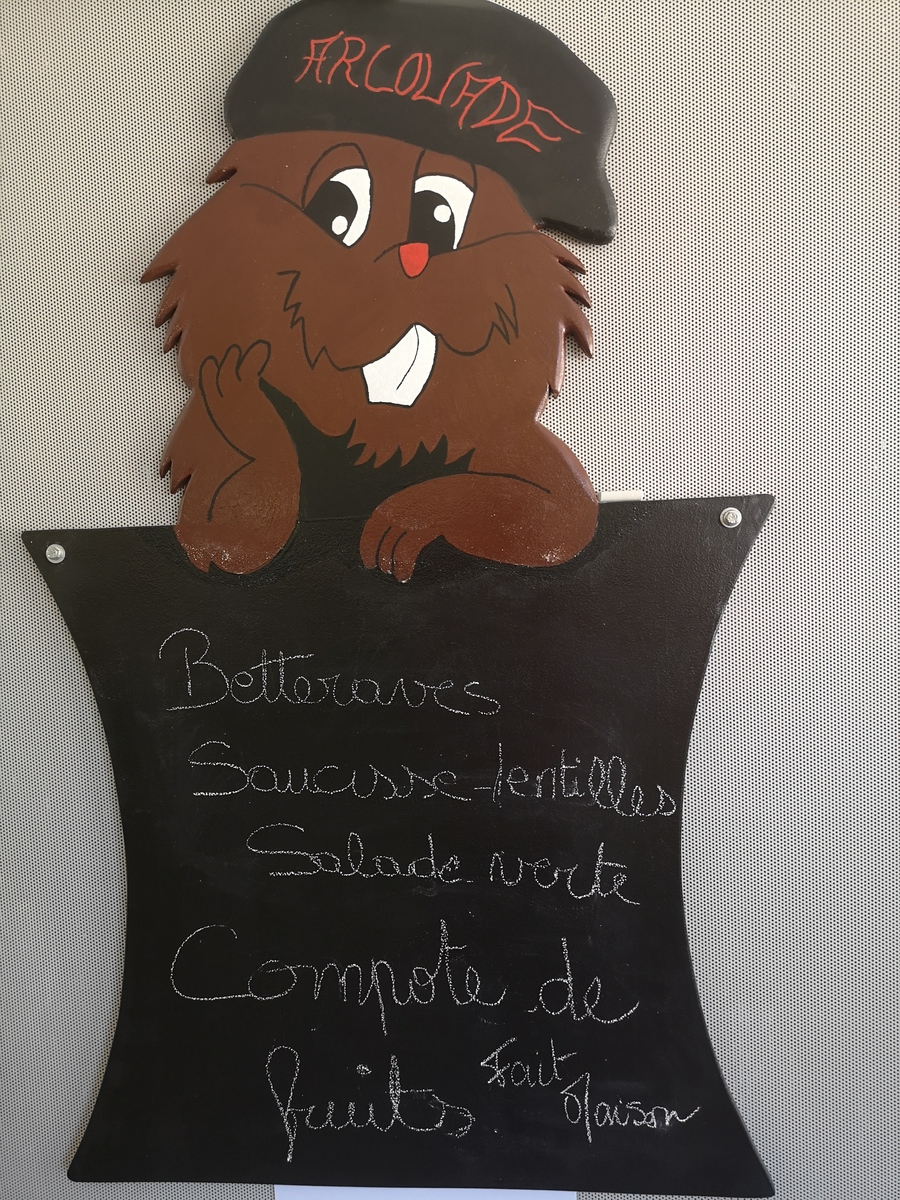 ARCOUADE
Betteraves
Saucisse-lentilles
Salade verte
Compote de
fruits Fait
Maison